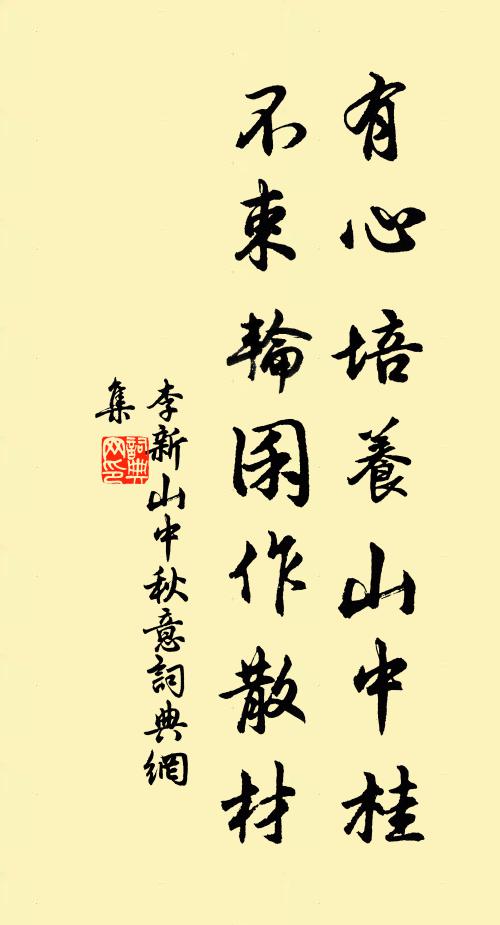 有心培養山中桂
不束輪囷作散材
李新山中秋意詞典網
集
詞典網印